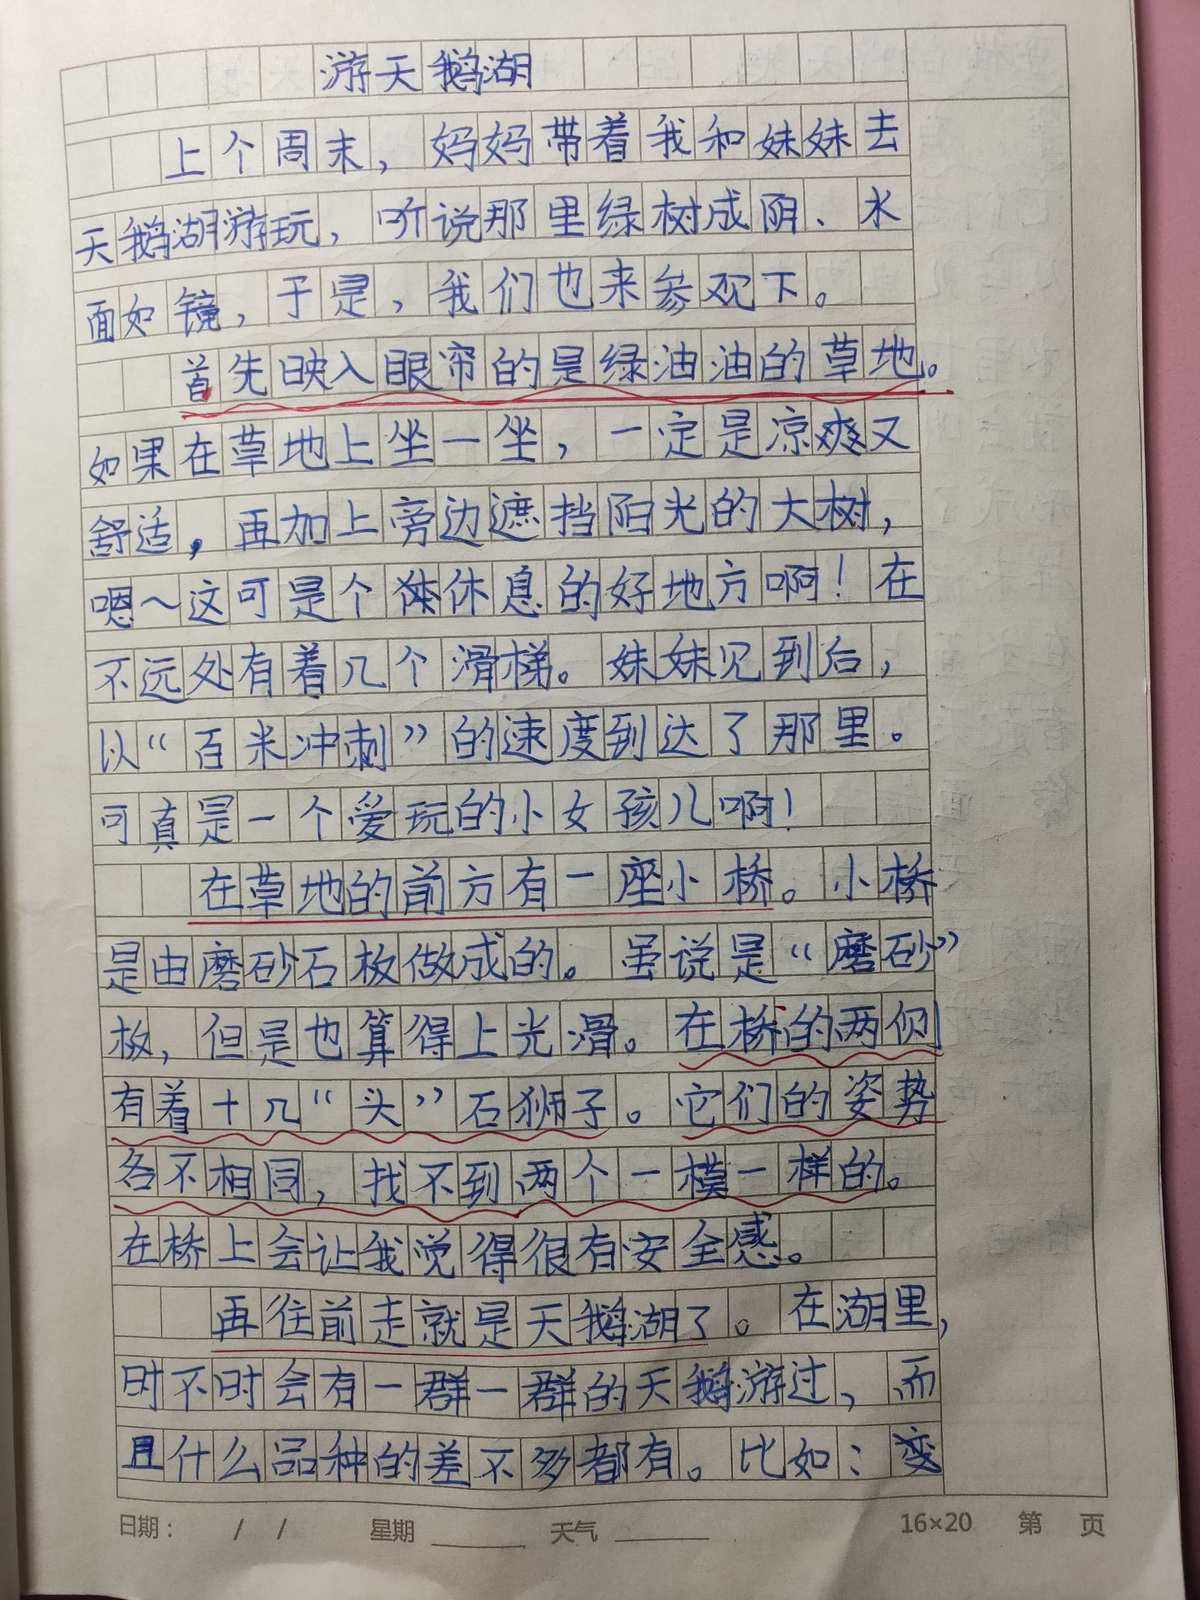 游天鹅湖
上个周末，妈妈带着我和妹妹去
天鹅湖游玩，听说那里绿树成阴、水
面如镜，于是，我们也来参观下。
首先映入眼帘的是绿油油的草地。
如果在草地上坐一坐，一定是凉爽又
舒适，再加上旁边遮挡阳光的大树，
嗯～这可是个休息的好地方啊！在
不远处有着几个滑梯。妹妹见到后，
以“百米冲刺”的速度到达了那里。
可真是一个爱玩的小女孩儿啊！
在草地的前方有一座小桥。小桥
是由磨砂石板做成的。虽说是“磨砂”
板，但是也算得上光滑。在桥的两侧
有着十几“头”石狮子。它们的姿势
各不相同，找不到两个一模一样的。
在桥上会让我觉得很有安全感。
再往前走就是天鹅湖了。在湖里，
时不时会有一群一群的天鹅游过，而
且什么品种的差不多都有。比如：
日期： / / 星期 天气 16×20 第 页